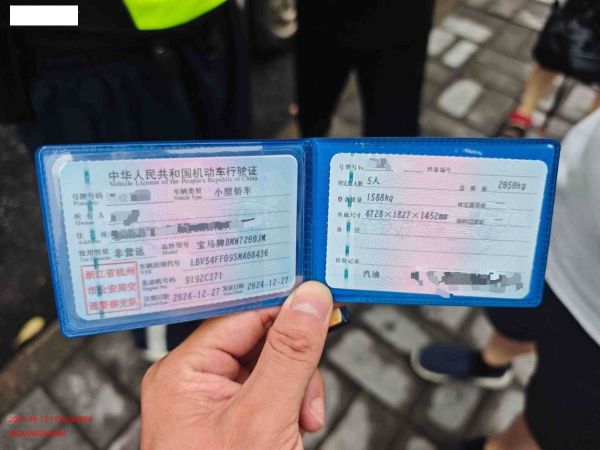 中华人民共和国机动车行驶证
Vehicle License of the People's Republic of China
号牌号码
车辆类型 小型轿车
Vehicle Type
所有人
Owner
住址
Address
使用性质 非营运
品牌型号 宝马牌BMW7200JM
Model
浙江省杭州
市公安局交
通警察支队
车辆识别代号 LBV54FF09SMA08436
VIN
发动机号码 9192C371
Engine No.
注册日期 2024-12-27 发证日期 2024-12-27
号牌号码
档案编号
核定载人数 5人
总质量 2050kg
整备质量 1588kg
外廓尺寸 4728×1827×1452
备注
检验记录
汽油